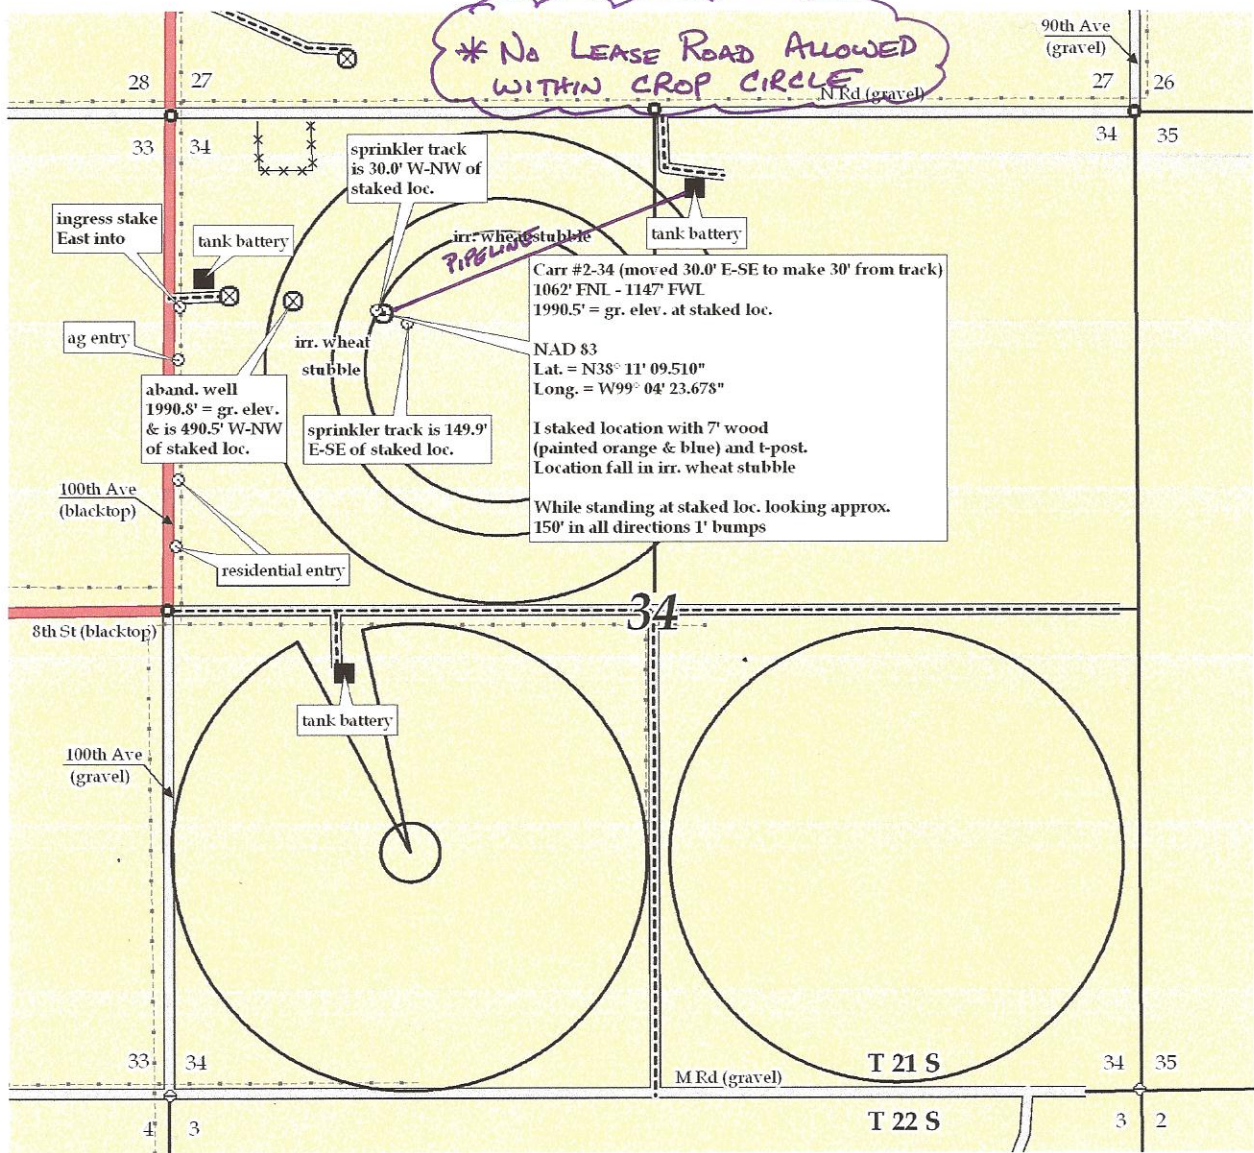 * No LEASE ROAD ALLOWED
WITHIN CROP CIRCLE
90th Ave
(gravel)
28 27
27 26
N Rd (gravel)
33 34
34 35
sprinkler track
is 30.0' W-NW of
staked loc.
ingress stake
East into
tank battery
irr. wheat stubble
tank battery
PIPELINE
Carr #2-34 (moved 30.0' E-SE to make 30' from track)
1062' FNL - 1147' FWL
1990.5' = gr. elev. at staked loc.
NAD 83
Lat. = N38° 11' 09.510"
Long. = W99° 04' 23.678"
I staked location with 7' wood
(painted orange & blue) and t-post.
Location fall in irr. wheat stubble
While standing at staked loc. looking approx.
150' in all directions 1' bumps
ag entry
irr. wheat
stubble
aband. well
1990.8' = gr. elev.
& is 490.5' W-NW
of staked loc.
sprinkler track is 149.9'
E-SE of staked loc.
100th Ave
(blacktop)
residential entry
34
8th St (blacktop)
tank battery
100th Ave
(gravel)
33 34
T 21 S
34 35
M Rd (gravel)
4 3
T 22 S
3 2